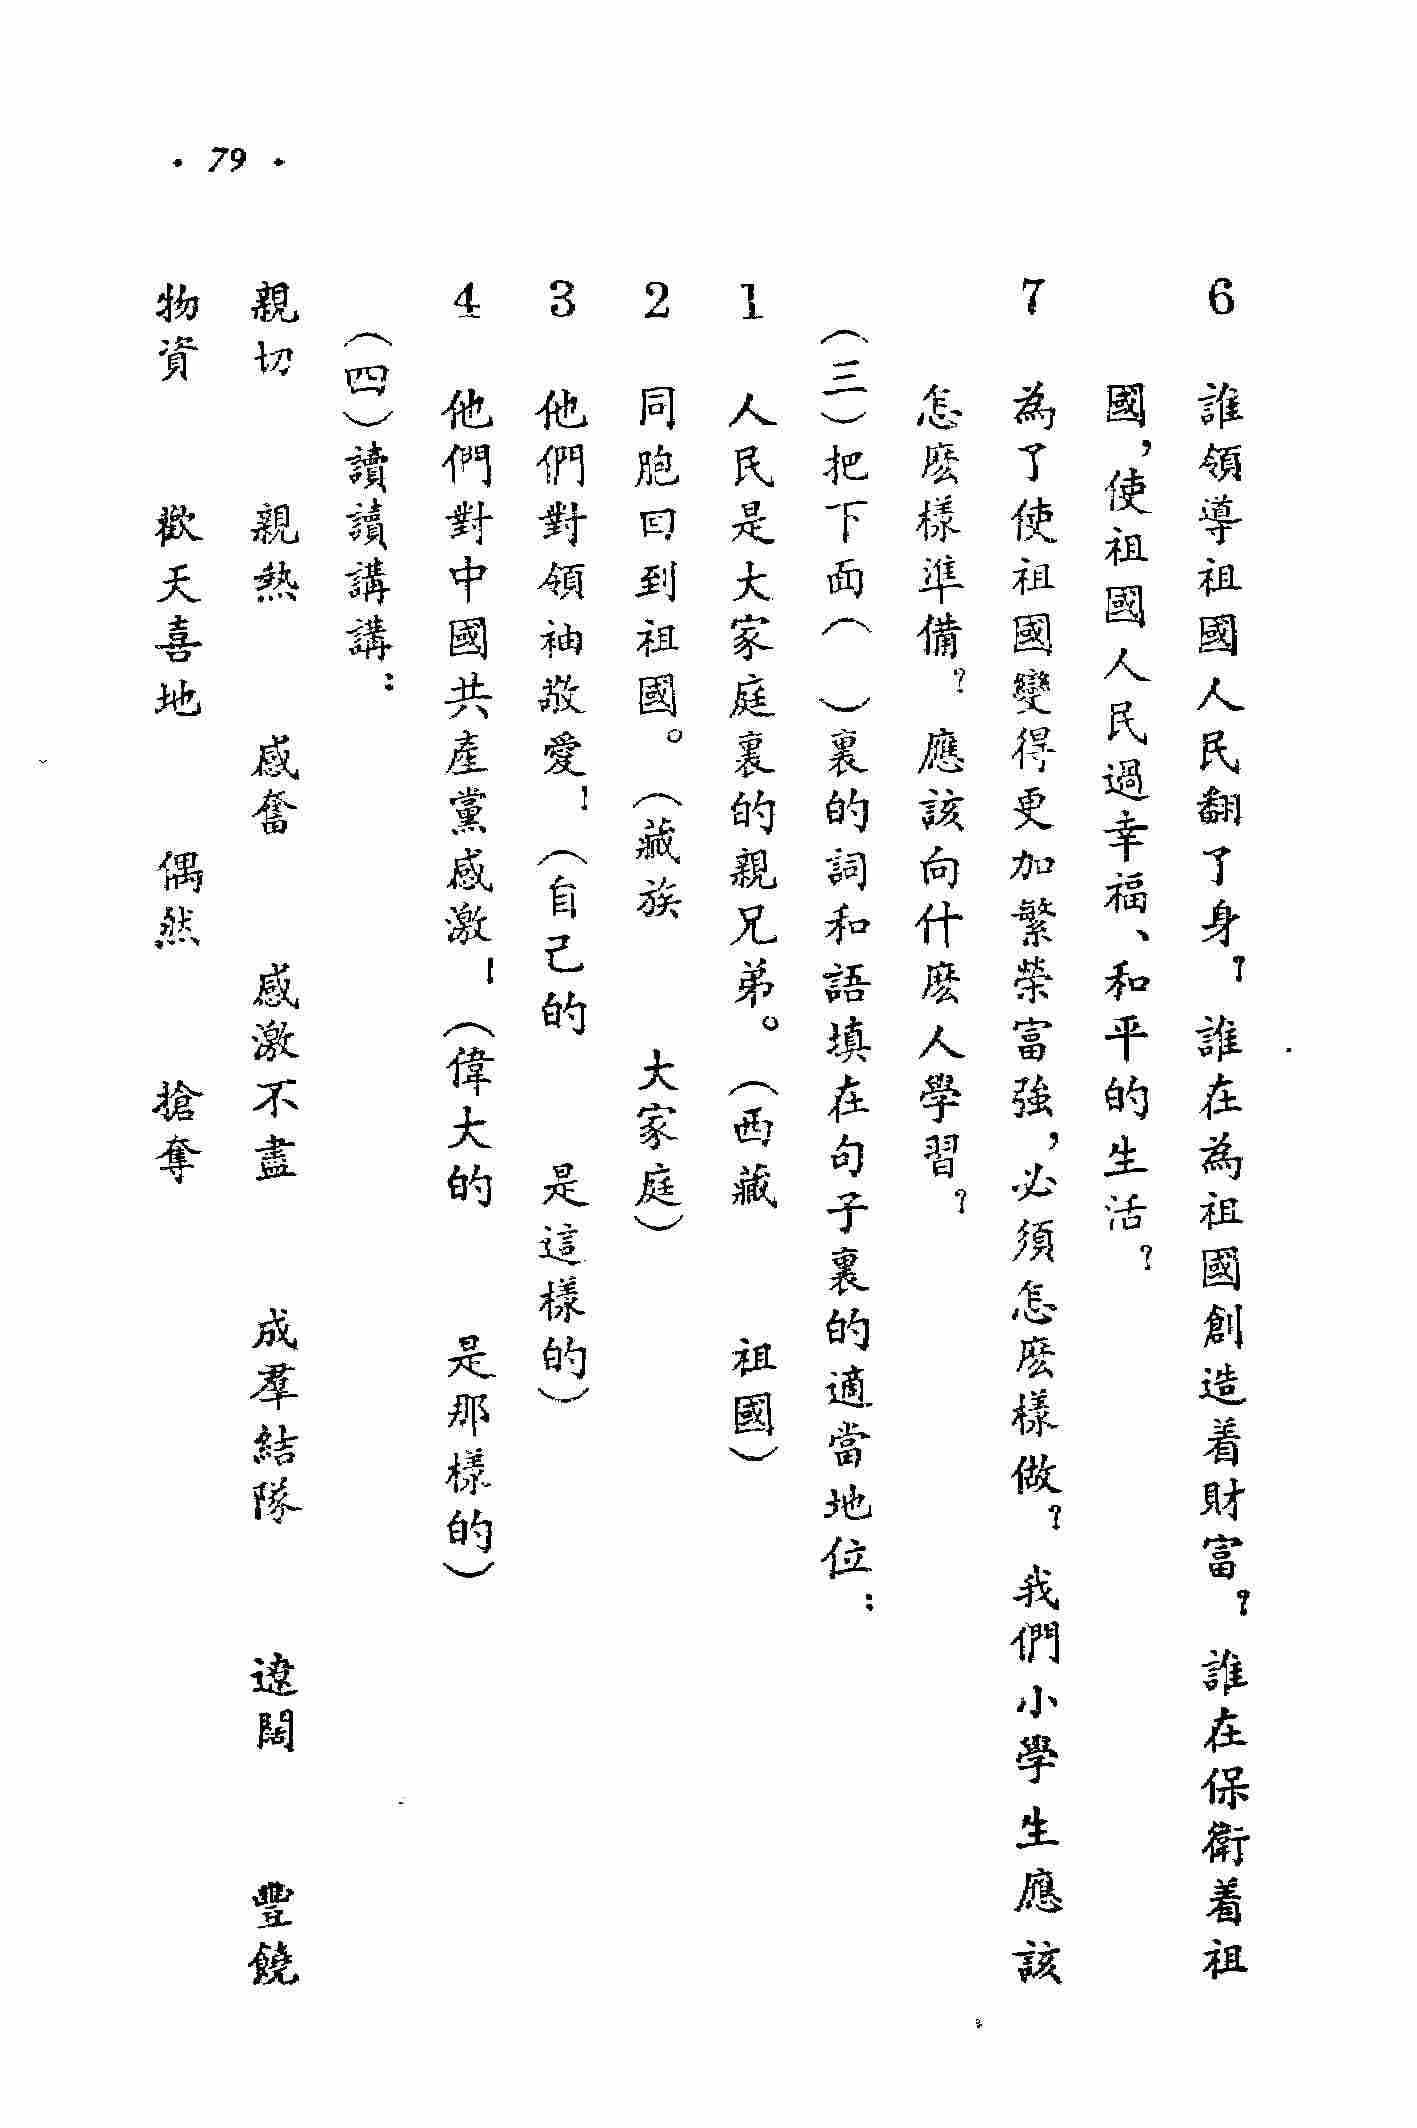 · 79 ·
6 誰領導祖國人民翻了身?誰在為祖國創造着財富?誰在保衛着祖
國,使祖國人民過幸福、和平的生活?
7 為了使祖國變得更加繁榮富強,必須怎麽樣做?我們小學生應該
怎麽樣準備?應該向什麽人學習?
(三)把下面( )裏的詞和語填在句子裏的適當地位:
1 人民是大家庭裏的親兄弟。(西藏 祖國)
2 同胞回到祖國。(藏族 大家庭)
3 他們對領袖敬愛!(自己的 是這樣的)
4 他們對中國共產黨感激!(偉大的 是那樣的)
(四)讀讀講講:
親切 親熱 感奮 感激不盡 成羣結隊 遼闊 豐饒
物資 歡天喜地 偶然 搶奪